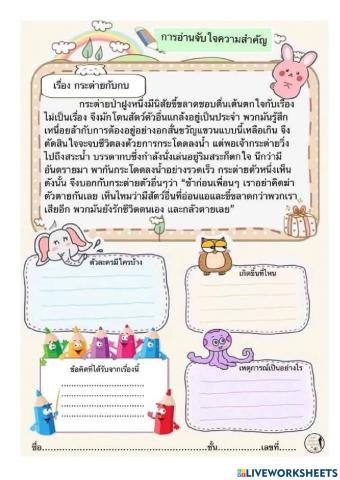 การอ่านจับใจความสำคัญ
เรื่อง กระต่ายกับกบ
กระต่ายป่าฝูงหนึ่งมีนิสัยขี้ขลาดชอบตื่นเต้นตกใจกับเรื่อง
ไม่เป็นเรื่อง จึงมักโดนสัตว์ตัวอื่นแกล้งอยู่เป็นประจำ พวกมันรู้สึก
เหนื่อยล้ากับการต้องอยู่อย่างอกสั่นขวัญแขวนแบบนี้เหลือเกิน จึง
ตัดสินใจจะจบชีวิตลงด้วยการกระโดดลงน้ำ แต่พอเจ้ากระต่ายวิ่ง
ไปถึงสระน้ำ บรรดากบซึ่งกำลังนั่งเล่นอยู่ริมสระก็ตกใจ นึกว่ามี
อันตรายมา พากันกระโดดลงน้ำอย่างรวดเร็ว กระต่ายตัวหนึ่งเห็น
ดังนั้น จึงบอกกับกระต่ายตัวอื่นๆว่า "ช้าก่อนเพื่อนๆ เราอย่าคิดฆ่า
ตัวตายกันเลย เห็นไหมว่ามีสัตว์อื่นที่อ่อนแอและขี้ขลาดกว่าพวกเรา
เสียอีก พวกมันยังรักชีวิตตนเอง และกลัวตายเลย"
ตัวละครมีใครบ้าง
เกิดขึ้นที่ไหน
ข้อคิดที่ได้รับจากเรื่องนี้
เหตุการณ์เป็นอย่างไร
ชื่อ..................................................ชั้น..............เลขที่......
LIVEWORKSHEETS